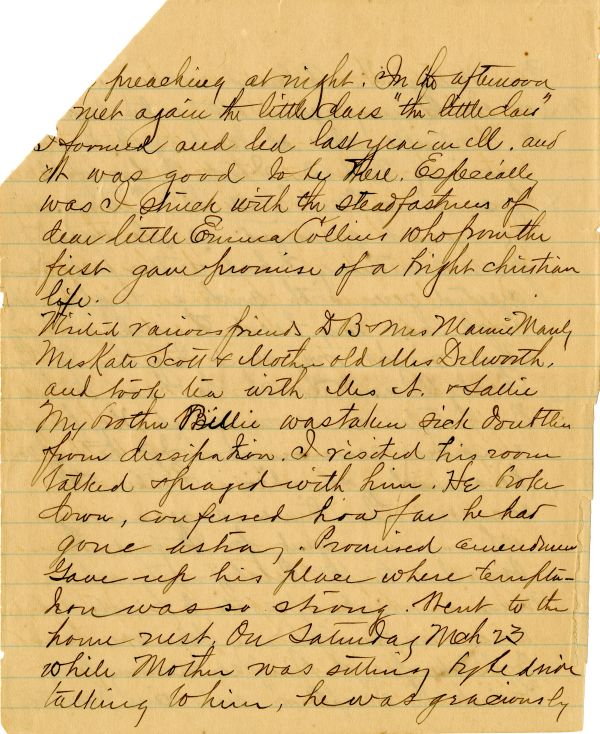 preaching at night. In the afternoon
met again the little class "the little class"
I formed and led last year in
it was good to be there. Especially
was I struck with the steadfastness of
dear little Emma Collins who from the
first gave promise of a bright christian
life.
Visited various friends D B & Mrs Mamie Manly
Mrs Kate Scott & Mother old Mrs Dilworth,
and took tea with Mrs A. & Sallie
My brother Billie was taken sick doubtless
from dissipation. I visited his room
talked & prayed with him. He broke
down, confessed how far he had
gone astray. Promised amendment
Gave up his place where tempta-
tion was so strong. Went to the
home nest. On Saturday Mch 23
while Mother was sitting by bedside
talking to him, he was graciously